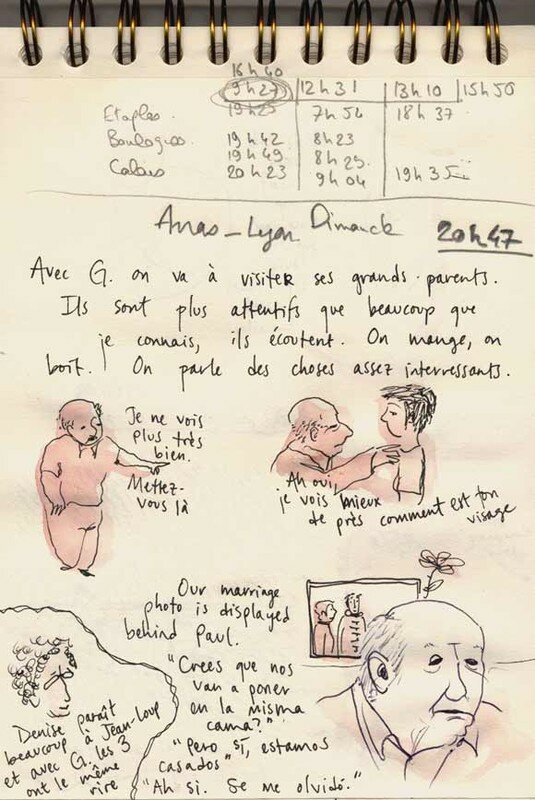 16h40
9h27 12h31 13h10 15h50
Etaples 19h25 7h54 18h37
Boulogne 19h42 8h23
19h49 8h25
Calais 20h23 9h04 19h35
Arras - Lyon Dimanche 20h47
Avec G. on va à visiter ses grands-parents.
Ils sont plus attentifs que beaucoup que
je connais, ils écoutent. On mange, on
boit. On parle des choses assez interressants.
Je ne vois
plus très
bien.
Mettez-
vous là
Ah oui,
je vois mieux
de près comment est ton
visage
Our marriage
photo is displayed
behind Paul.
"Crees que nos
van a poner
en la misma
cama?"
"Pero sí, estamos
casados"
"Ah si. Se me olvidó."
Denise paraît
beaucoup à Jean-Loup
et avec G. les 3
ont le même
rire